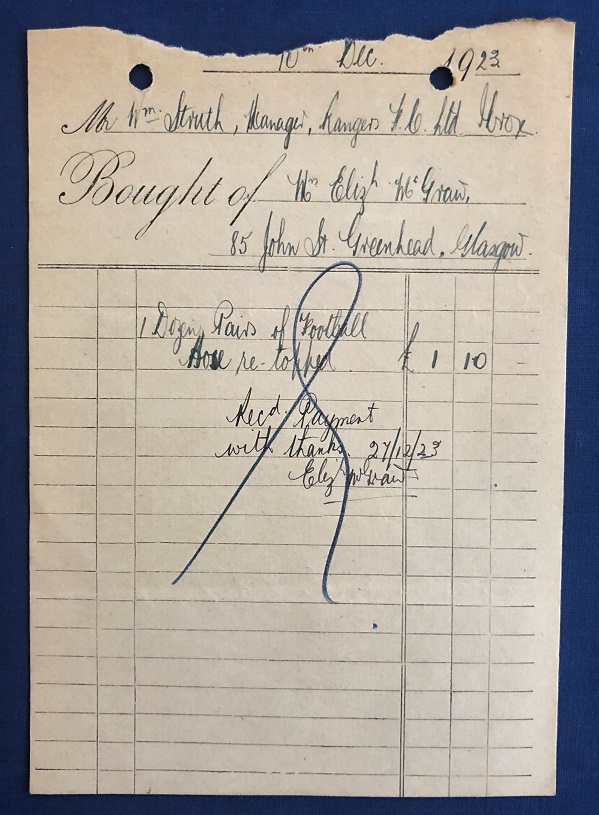 10th Dec. 1923
Mr Wm. Struth, Manager, Rangers F.C. Ltd Ibrox.
Bought of Mrs Elizh McGraw,
85 John St. Greenhead, Glasgow.
1 Dozen Pairs of Football
Hose re-topped. £ 1 10
Recd. Payment
with thanks. 27/12/23
Elizh McGraw